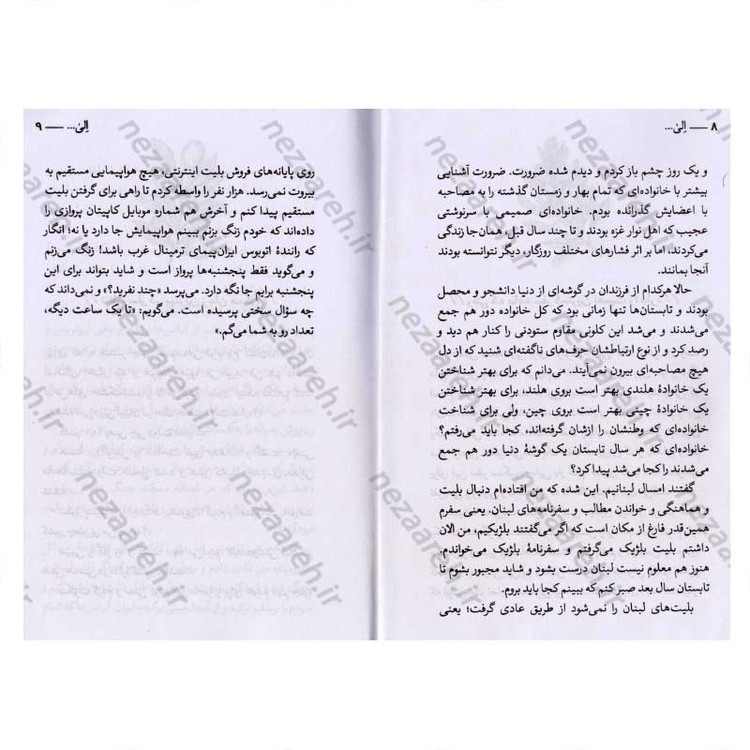 ۸ —— اِلیٰ...
و یک روز چشم باز کردم و دیدم شده ضرورت. ضرورت آشنایی
بیشتر با خانواده‌ای که تمام بهار و زمستان گذشته را به مصاحبه
با اعضایش گذرانده بودم. خانواده‌ای صمیمی با سرنوشتی
عجیب که اهل نوار غزه بودند و تا چند سال قبل، همان‌جا زندگی
می‌کردند، اما بر اثر فشارهای مختلف روزگار، دیگر نتوانسته بودند
آنجا بمانند.
حالا هرکدام از فرزندان در گوشه‌ای از دنیا دانشجو و محصل
بودند و تابستان‌ها تنها زمانی بود که کل خانواده دور هم جمع
می‌شدند و می‌شد این کلونی مقاوم ستودنی را کنار هم دید و
رصد کرد و از نوع ارتباطشان حرف‌های ناگفته‌ای شنید که از دل
هیچ مصاحبه‌ای بیرون نمی‌آیند. می‌دانم که برای بهتر شناختن
یک خانوادهٔ هلندی بهتر است بروی هلند، برای شناختن
یک خانوادهٔ چینی بهتر است بروی چین، ولی برای شناخت
خانواده‌ای که وطنشان را ازشان گرفته‌اند، کجا باید می‌رفتم؟
خانواده‌ای که هر سال تابستان یک گوشهٔ دنیا دور هم جمع
می‌شدند را کجا می‌شد پیدا کرد؟
گفتند امسال لبنانیم. این شده که من افتاده‌ام دنبال بلیت
و هماهنگی و خواندن مطالب و سفرنامه‌های لبنان. یعنی سفرم
همین‌قدر فارغ از مکان است که اگر می‌گفتند بلژیکیم، من الان
داشتم بلیت بلژیک می‌گرفتم و سفرنامهٔ بلژیک می‌خواندم.
هنوز هم معلوم نیست لبنان درست بشود و شاید مجبور بشوم تا
تابستان سال بعد صبر کنم که ببینم کجا باید بروم.
بلیت‌های لبنان را نمی‌شود از طریق عادی گرفت؛ یعنی
اِلیٰ... —— ۹
روی پایانه‌های فروش بلیت اینترنتی، هیچ هواپیمایی مستقیم به
بیروت نمی‌رسد. هزار نفر را واسطه کردم تا راهی برای گرفتن بلیت
مستقیم پیدا کنم و آخرش هم شماره موبایل کاپیتان پروازی را
داده‌اند که خودم زنگ بزنم ببینم هواپیمایش جا دارد یا نه؛ انگار
که رانندهٔ اتوبوس ایران‌پیمای ترمینال غرب باشد! زنگ می‌زنم
و می‌گوید فقط پنجشنبه‌ها پرواز است و شاید بتواند برای این
پنجشنبه برایم جا نگه دارد. می‌پرسد «چند نفرید؟» و نمی‌داند که
چه سؤال سختی پرسیده است. می‌گویم: «تا یک ساعت دیگه،
تعداد رو به شما می‌گم.»
nezaareh.ir